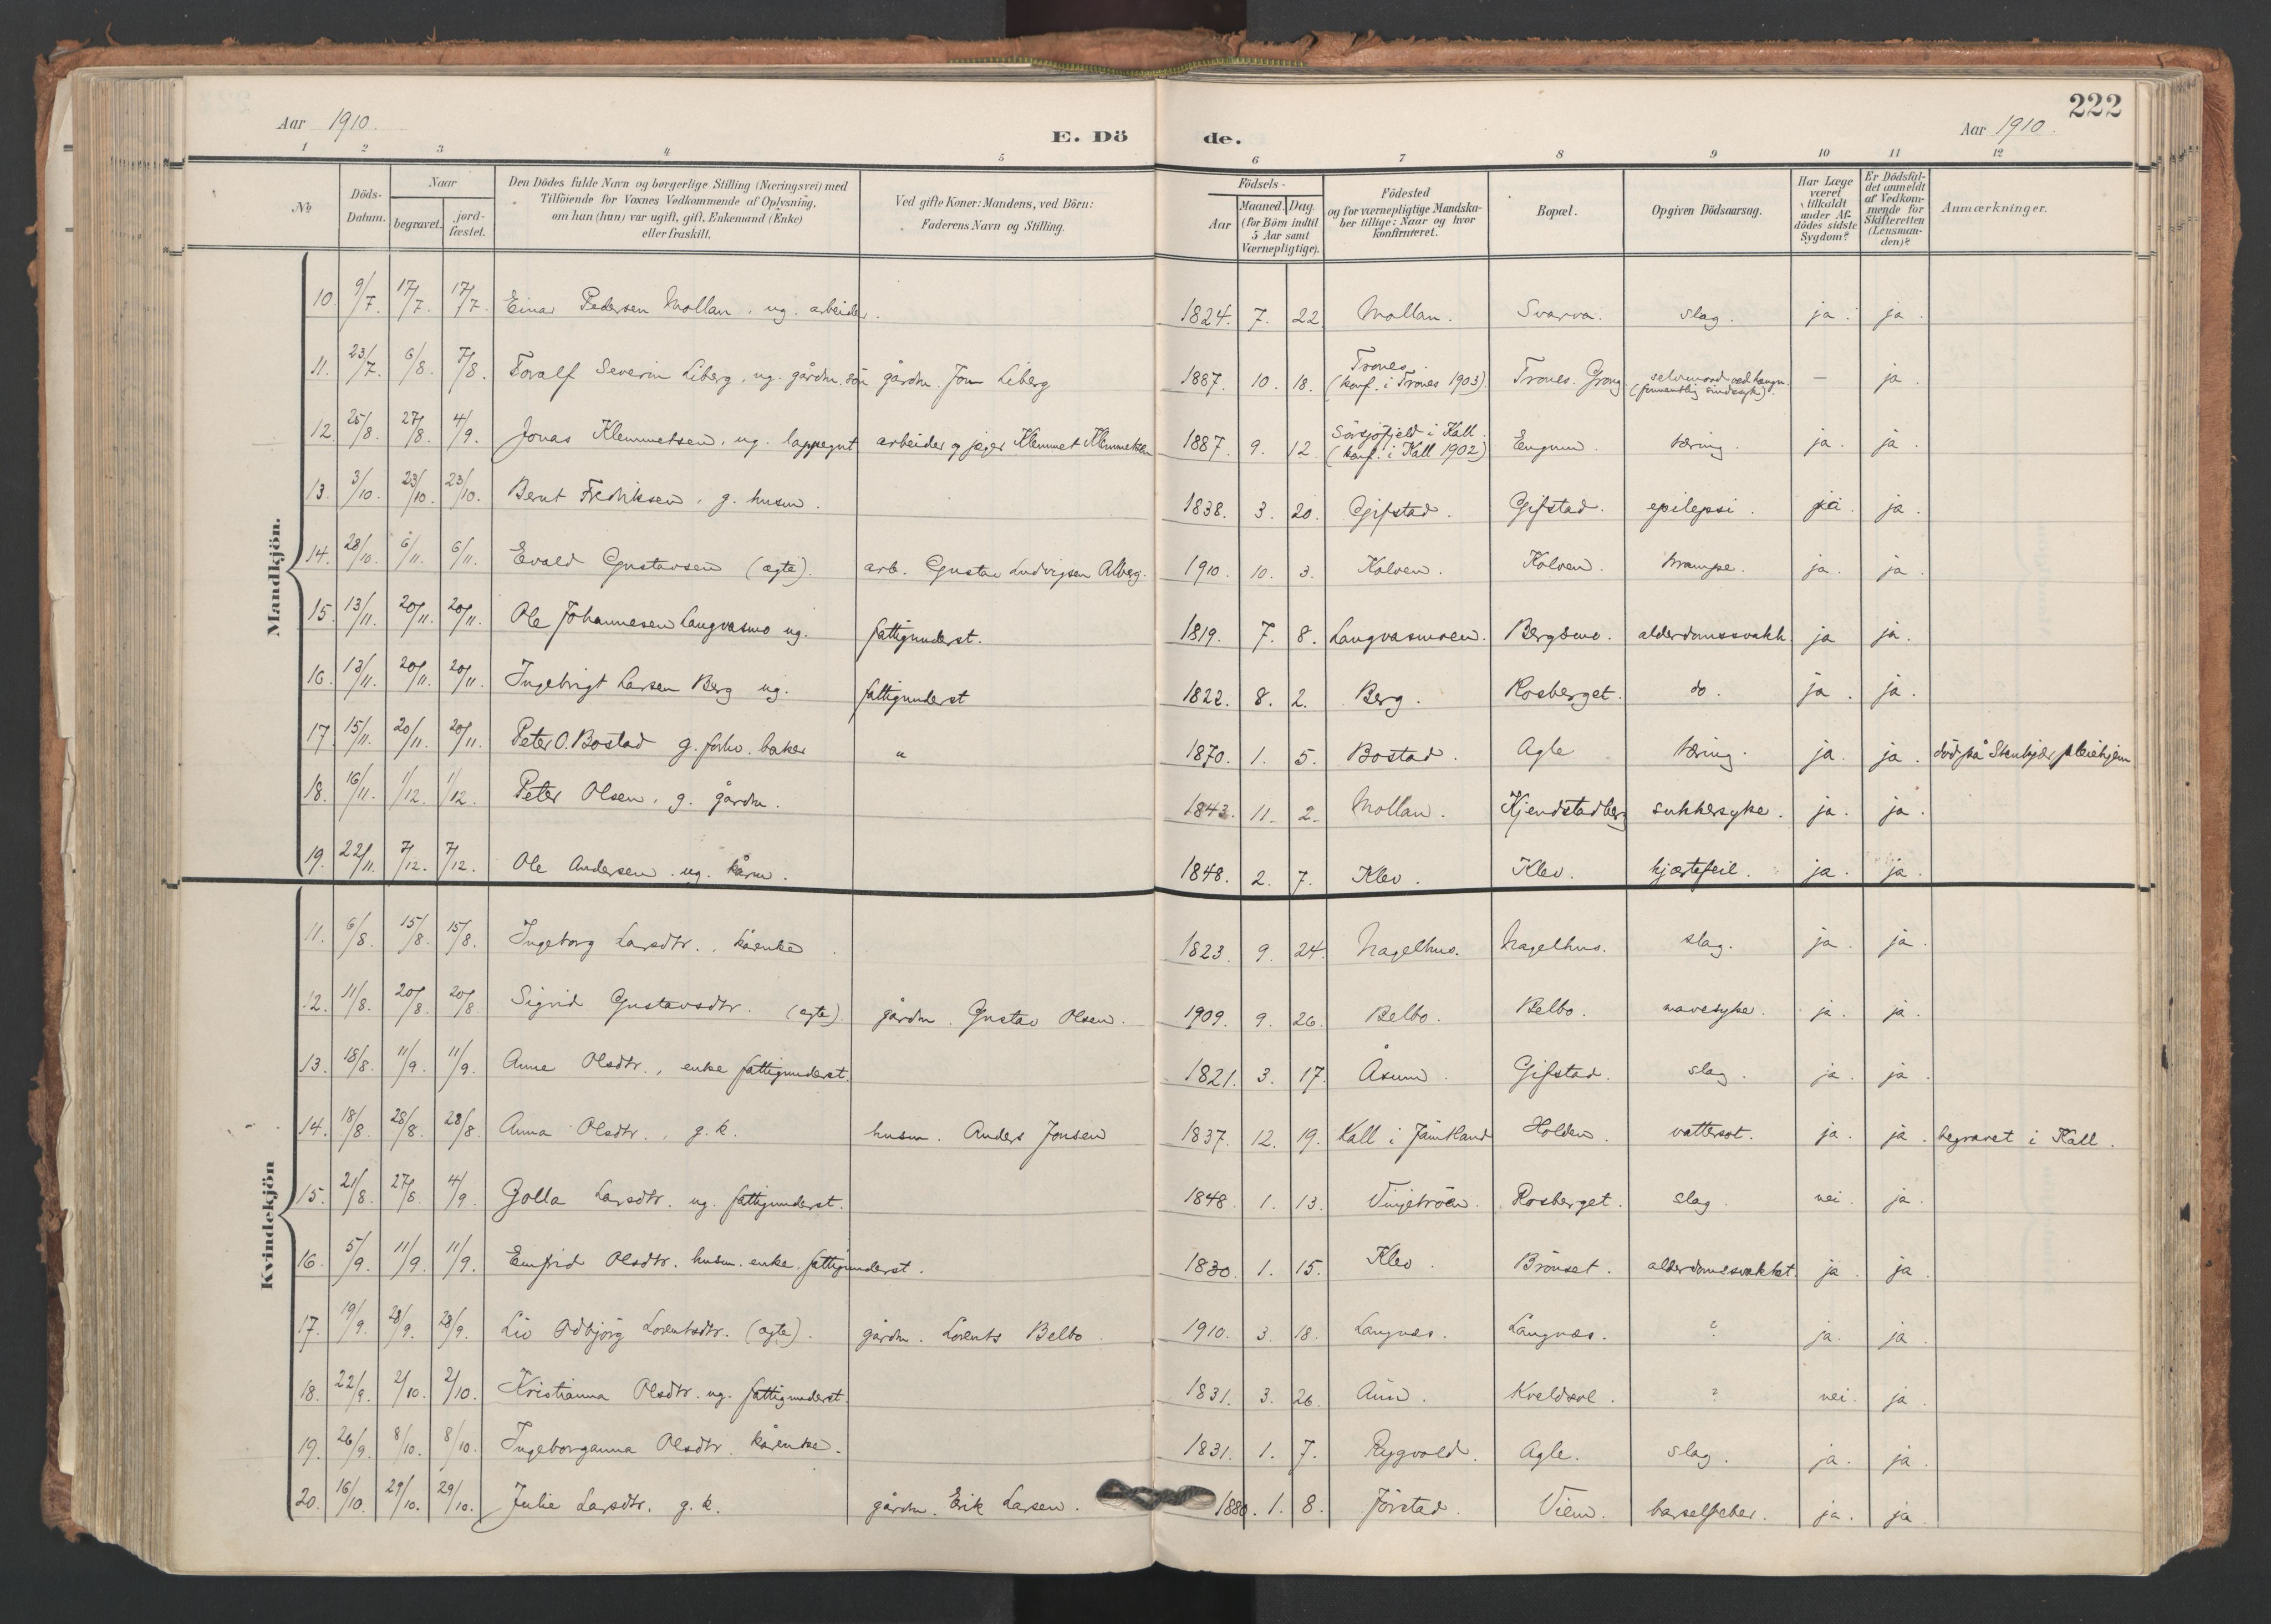 222
Aar 1910.
E. Dö
de.
Aar 1910.
1 2 3 4 5 6 7 8 9 10 11 12
№
Döds-Datum.
Naar
begravet.
jord-fæstet.
Den Dödes fulde Navn og borgerlige Stilling (Næringsvei) med
Tilföiende for Voxnes Vedkommende af Oplysning,
om han (hun) var ugift, gift, Enkemand (Enke)
eller fraskilt.
Ved gifte Koner: Mandens, ved Börn:
Faderens Navn og Stilling.
Födsels-
Aar
Maaned. Dag.
(for Börn indtil
5 Aar samt
Værnepligtige).
Födested
og for værnepligtige Mandska-
ber tillige: Naar og hvor
konfirmeret.
Bopæl.
Opgiven Dödsaarsag.
Har Læge
været
tilkaldt
under Af-
dödes sidste
Sygdom?
Er Dödsfal-
det anmeldt
af Vedkom-
mende for
Skifteretten
(Lensman-
den)?
Anmærkninger.
Mandkjön.
10. 9/7. 17/7. 17/7. Einar Pedersen Mollan. ug. arbeider. 1824. 7. 22 Mollan. Svarva. slag. ja. ja.
11. 23/7. 6/8. 7/8. Toralf Severin Liberg. ug. gårdm. sön gårdm. Jon Liberg 1887. 10. 18. Trones. (konf. i Trones 1903). Trones. Grong selvmord ved hængn. (formentlig sindssyk). — ja.
12. 25/8. 27/8. 4/9. Jonas Klemmetsen. ug. lappegut arbeider og jæger Klemmet Klemmetsen 1887. 9. 12. Sörsjöfjeld i Kall. (konf. i Kall 1902) Engum. tæring. ja. ja.
13. 3/10. 23/10. 23/10. Bernt Fredriksen. g. husm. 1838. 3. 20. Gifstad. Gifstad. epilepsi. ja. ja.
14. 28/10. 6/11. 6/11. Evald Gustavsen (ægte). arb. Gustav Ludvigsen Alberg. 1910. 10. 3. Kolven. Kolven. krampe. ja. ja.
15. 13/11. 20/11. 20/11. Ole Johannesen Langvasmo ug. fattigunderst. 1819. 7. 8. Langvasmoen. Bergsmo. alderdomssvakh. ja ja.
16. 13/11. 20/11. 20/11. Ingebrigt Larsen Berg ug. fattigunderst 1822. 8. 2. Berg. Rosberget. do. ja. ja.
17. 15/11. 20/11. 20/11. Peter O. Bostad g. forhv. baker " 1870. 1. 5. Bostad. Agle tæring. ja. ja. död på Stenkjær pleiehjem
18. 16/11. 1/12. 1/12. Peter Olsen. g. gårdm. 1843. 11. 2. Mollan. Kjendstadberg sukkersyke. ja. ja.
19. 22/11. 7/12. 7/12. Ole Andersen. ug. kårm. 1848. 2. 7. Klev. Klev. hjærtefeil. ja. ja.
Kvindekjön
11. 6/8. 15/8. 15/8. Ingeborg Larsdtr., kårenke. 1823. 9. 24. Nagelhus. Nagelhus. slag. ja. ja.
12. 11/8. 20/8. 20/8 Sigrid Gustavsdtr. (ægte). gårdm. Gustav Olsen. 1909. 9. 26. Belbo. Belbo. mavesyke. ja. ja.
13. 18/8. 11/9. 11/9. Anne Olsdtr., enke fattigunderst. 1821. 3. 17. Åsum. Gifstad. slag. ja. ja.
14. 18/8. 28/8. 28/8. Anna Olsdtr., g.k. husm. Anders Jonsen 1837. 12. 19. Kall i Jämtland Holden. vattersot. ja. ja. begravet i Kall.
15. 21/8. 27/8. 4/9. Golla Larsdtr. ug. fattigunderst. 1848. 1. 13. Vinjetröen. Rosberget. slag. nei. ja.
16. 5/9. 11/9. 11/9. Emfrid Olsdtr. husm. enke. fattigunderst. 1830. 1. 15. Klev. Brönset. alderdomssvakhet. ja. ja.
17. 19/9. 28/9. 28/9. Liv Odbjörg Lorentsdtr. (ægte). gårdm. Lorents Belbo 1910. 3. 18. Langnes. Langnes. ? ja. ja.
18. 22/9. 2/10. 2/10. Kristianna Olsdtr. ug. fattigunderst. 1831. 3. 26. Kveldsol. ? nei. ja.
19. 26/9. 8/10. 8/10. Ingeborganna Olsdtr. kårenke. 1831. 1. 7. Rygvold. Agle. slag. ja. ja.
20. 16/10. 29/10. 29/10. Julie Larsdtr. g.k. gårdm. Erik Larsen. 1880. 1. 8. Jörstad. Viem. barselfeber. ja. ja.